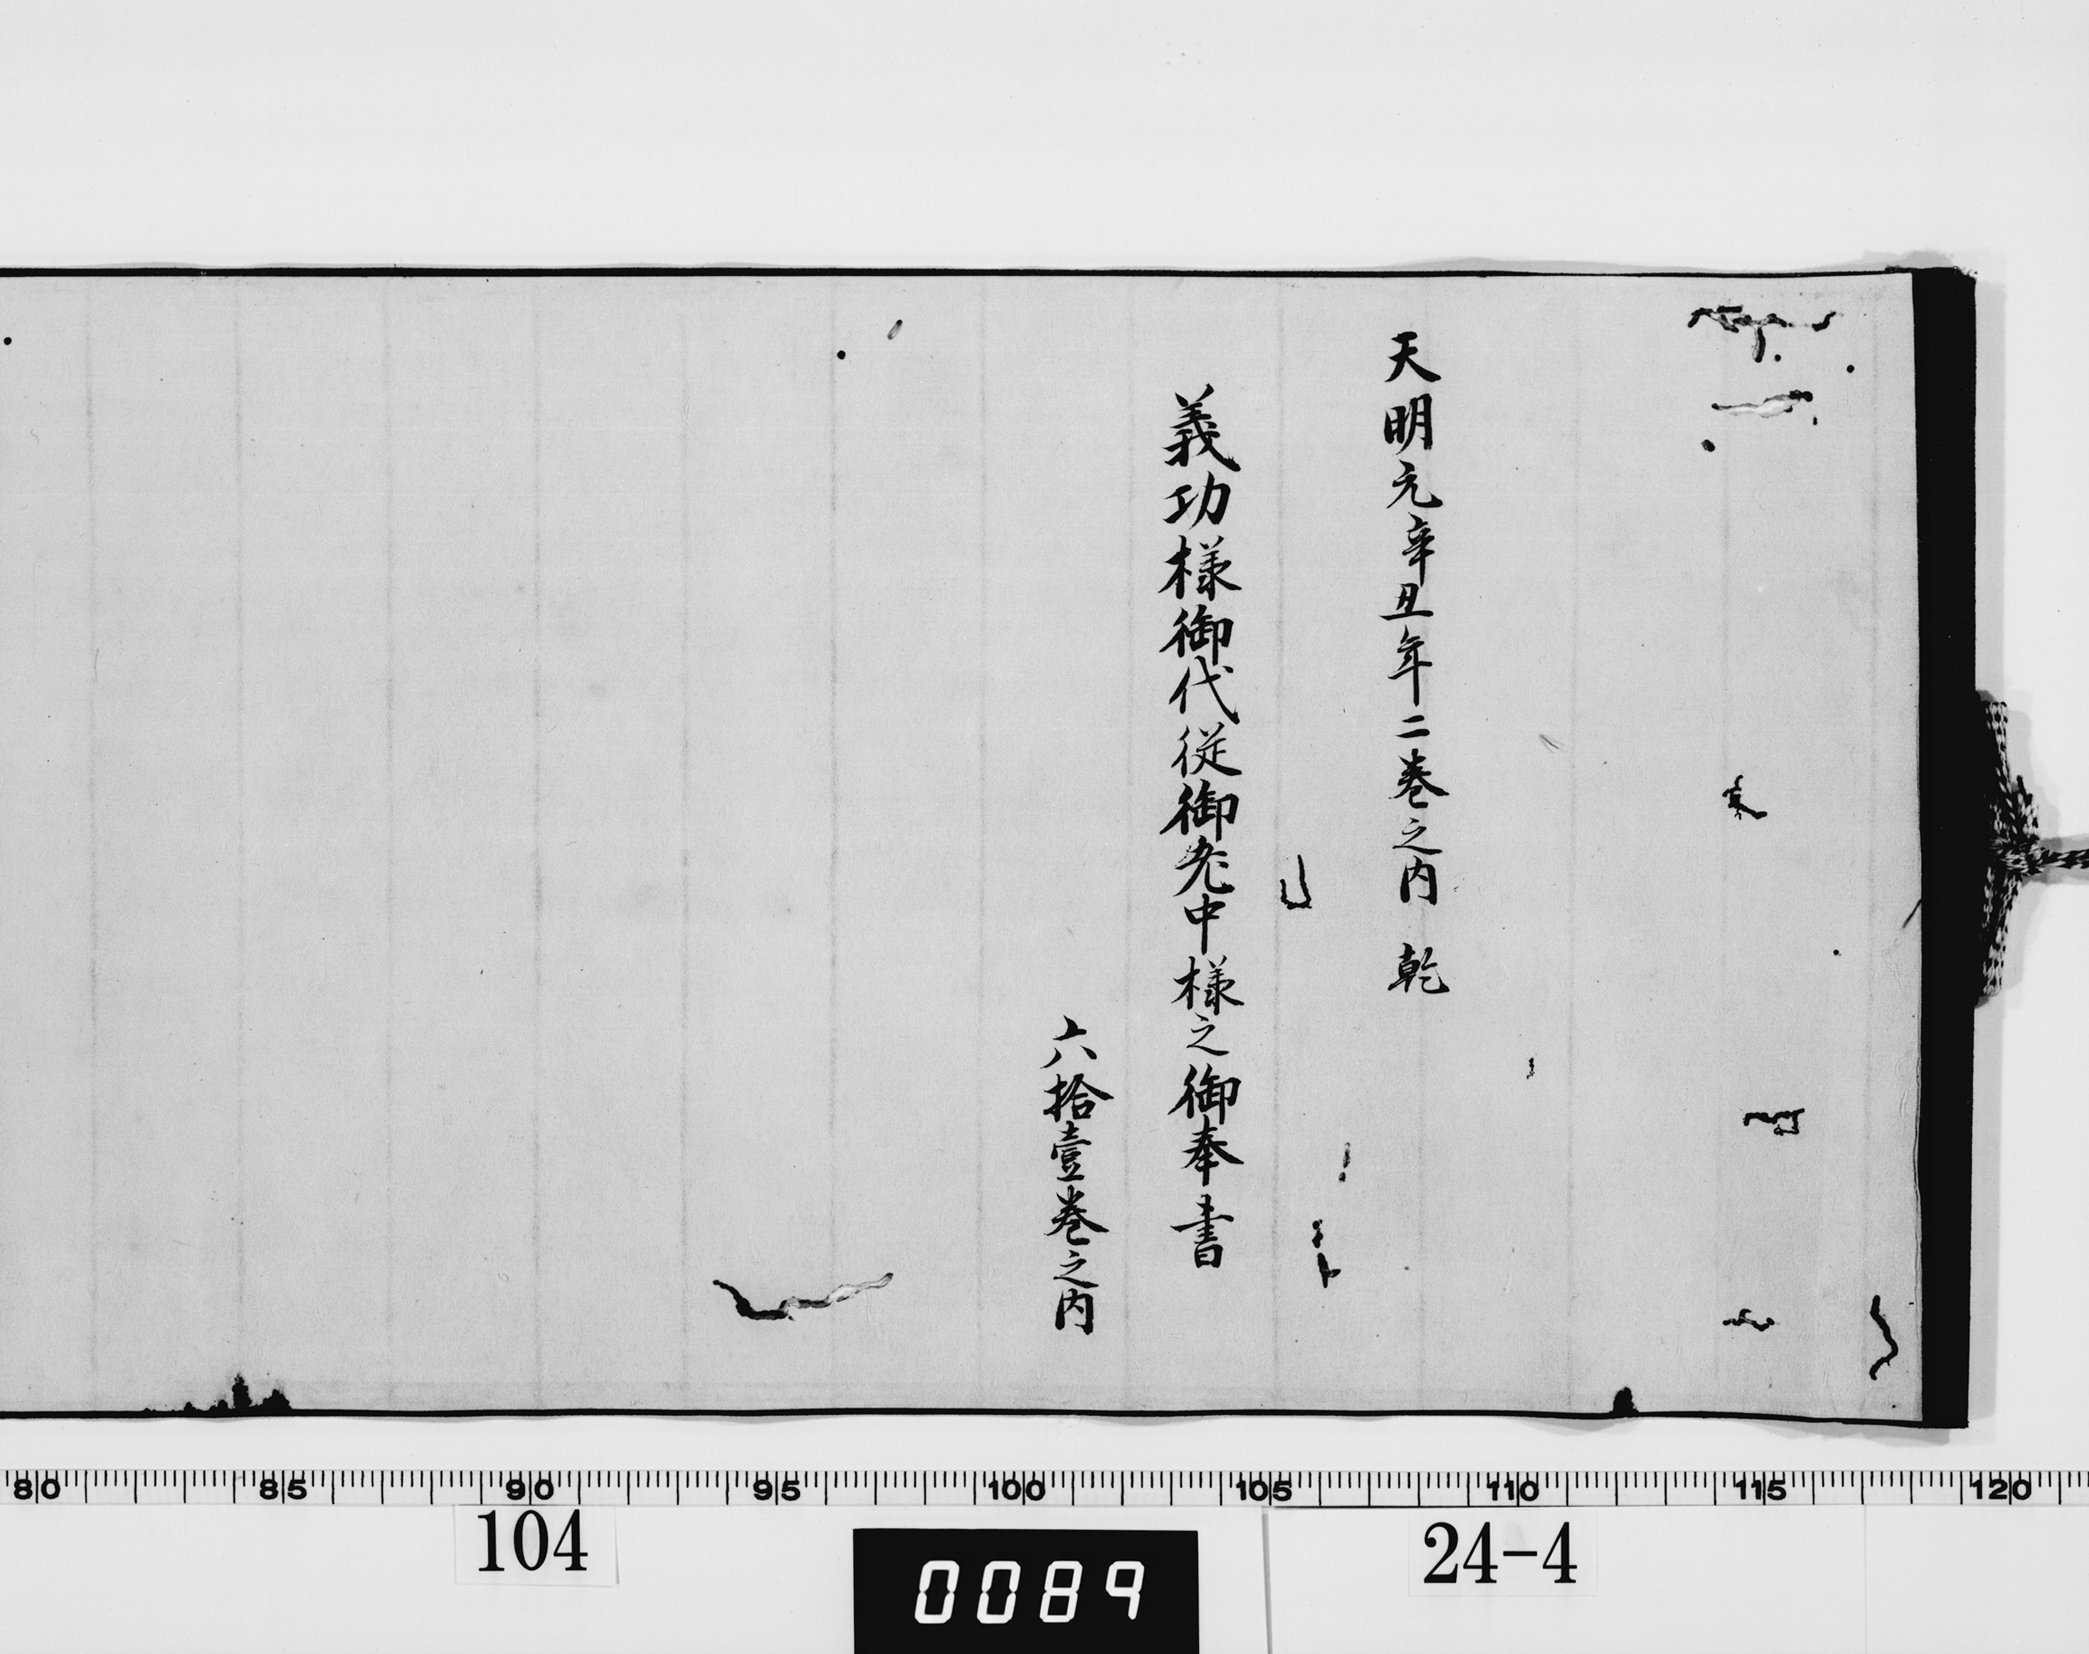 天明元辛丑年二巻之内　乾
義功様御代従御老中様之御奉書
六拾壹巻之内
80 85 90 95 100 105 110 115 120
104
0089
24-4